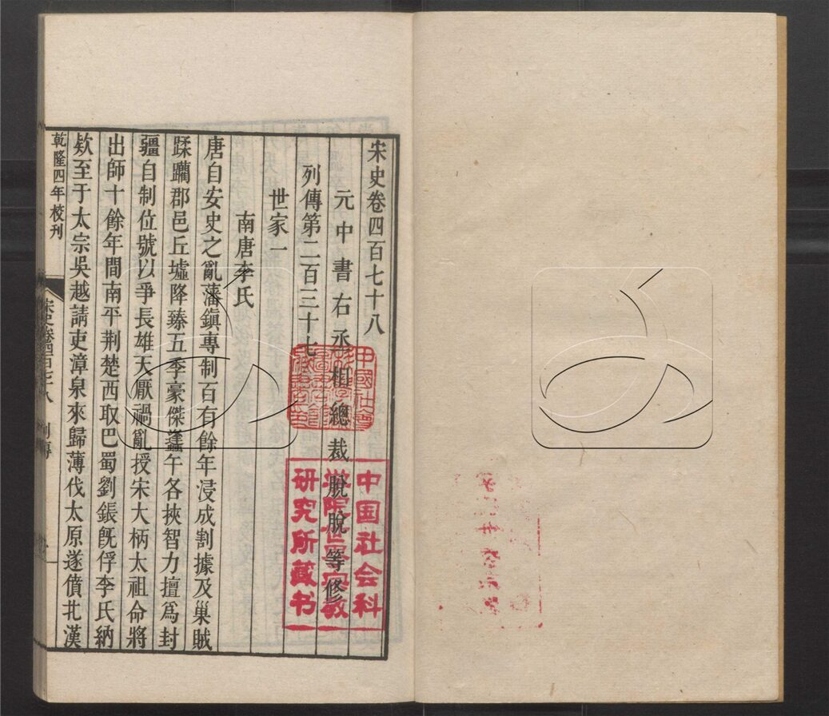 宋史卷四百七十八
元中書右丞相總裁脫脫等修
列傳第二百三十七
世家一
南唐李氏
唐自安史之亂藩鎮專制百有餘年浸成割據及巢賊
蹂躪郡邑丘墟降臻五季豪傑蠭午各挾智力擅爲封
疆自制位號以爭長雄天厭禍亂授宋大柄太祖命將
出師十餘年間南平荆楚西取巴蜀劉鋹旣俘李氏納
欵至于太宗吳越請吏漳泉來歸薄伐太原遂僨北漢
乾隆四年校刊
宋史卷四百七十八 列傳
中國社會
中国社会科
学院世界宗教
研究所藏书